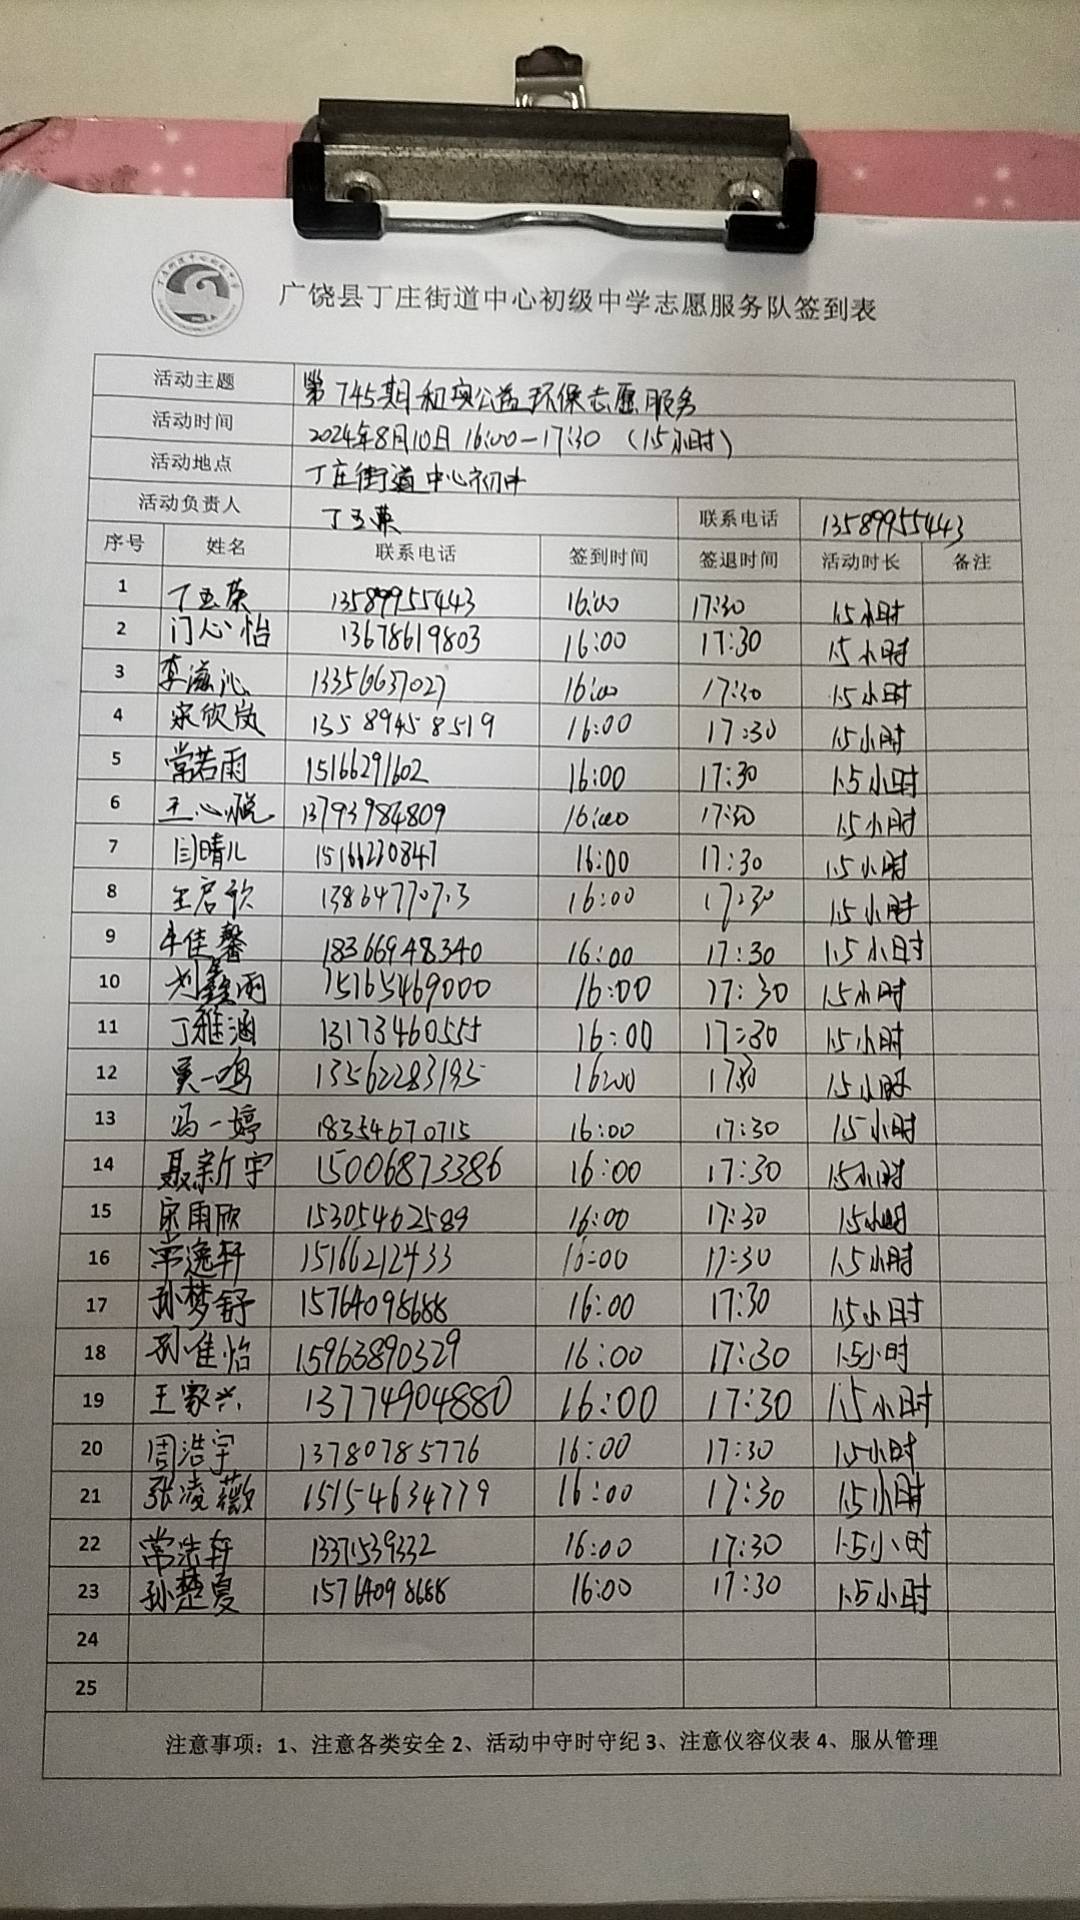 广饶县丁庄街道中心初级中学志愿服务队签到表
活动主题 第745期和奕公益环保志愿服务
活动时间 2024年8月10日 16:00-17:30 (1.5小时)
活动地点 丁庄街道中心初中
活动负责人 丁玉荣 联系电话 13589955443
序号 姓名 联系电话 签到时间 签退时间 活动时长 备注
1 丁玉荣 13589955443 16:00 17:30 1.5小时
2 门心怡 13678619803 16:00 17:30 1.5小时
3 李滋沁 13356637027 16:00 17:30 1.5小时
4 宋欣岚 13589458519 16:00 17:30 1.5小时
5 常若雨 15166291602 16:00 17:30 1.5小时
6 王心悦 13793984809 16:00 17:30 1.5小时
7 闫晴儿 15166230847 16:00 17:30 1.5小时
8 王启欣 16:00 17:30 1.5小时
9 牛佳馨 18366948340 16:00 17:30 1.5小时
10 刘鑫雨 15165469000 16:00 17:30 1.5小时
11 丁雅涵 13173460555 16:00 17:30 1.5小时
12 贾一鸣 13562283195 16:00 17:30 1.5小时
13 冯一婷 18354670715 16:00 17:30 1.5小时
14 聂新宇 15006873386 16:00 17:30 1.5小时
15 宋雨欣 15305462589 16:00 17:30 1.5小时
16 常逸轩 15166212433 16:00 17:30 1.5小时
17 孙梦舒 15764098688 16:00 17:30 1.5小时
18 孙佳怡 15963890329 16:00 17:30 1.5小时
19 王家兴 13774904880 16:00 17:30 1.5小时
20 周浩宇 13780785776 16:00 17:30 1.5小时
21 张凌薇 15154634779 16:00 17:30 1.5小时
22 常浩轩 13371539332 16:00 17:30 1.5小时
23 孙楚夏 15764098688 16:00 17:30 1.5小时
24
25
注意事项：1、注意各类安全 2、活动中守时守纪 3、注意仪容仪表 4、服从管理